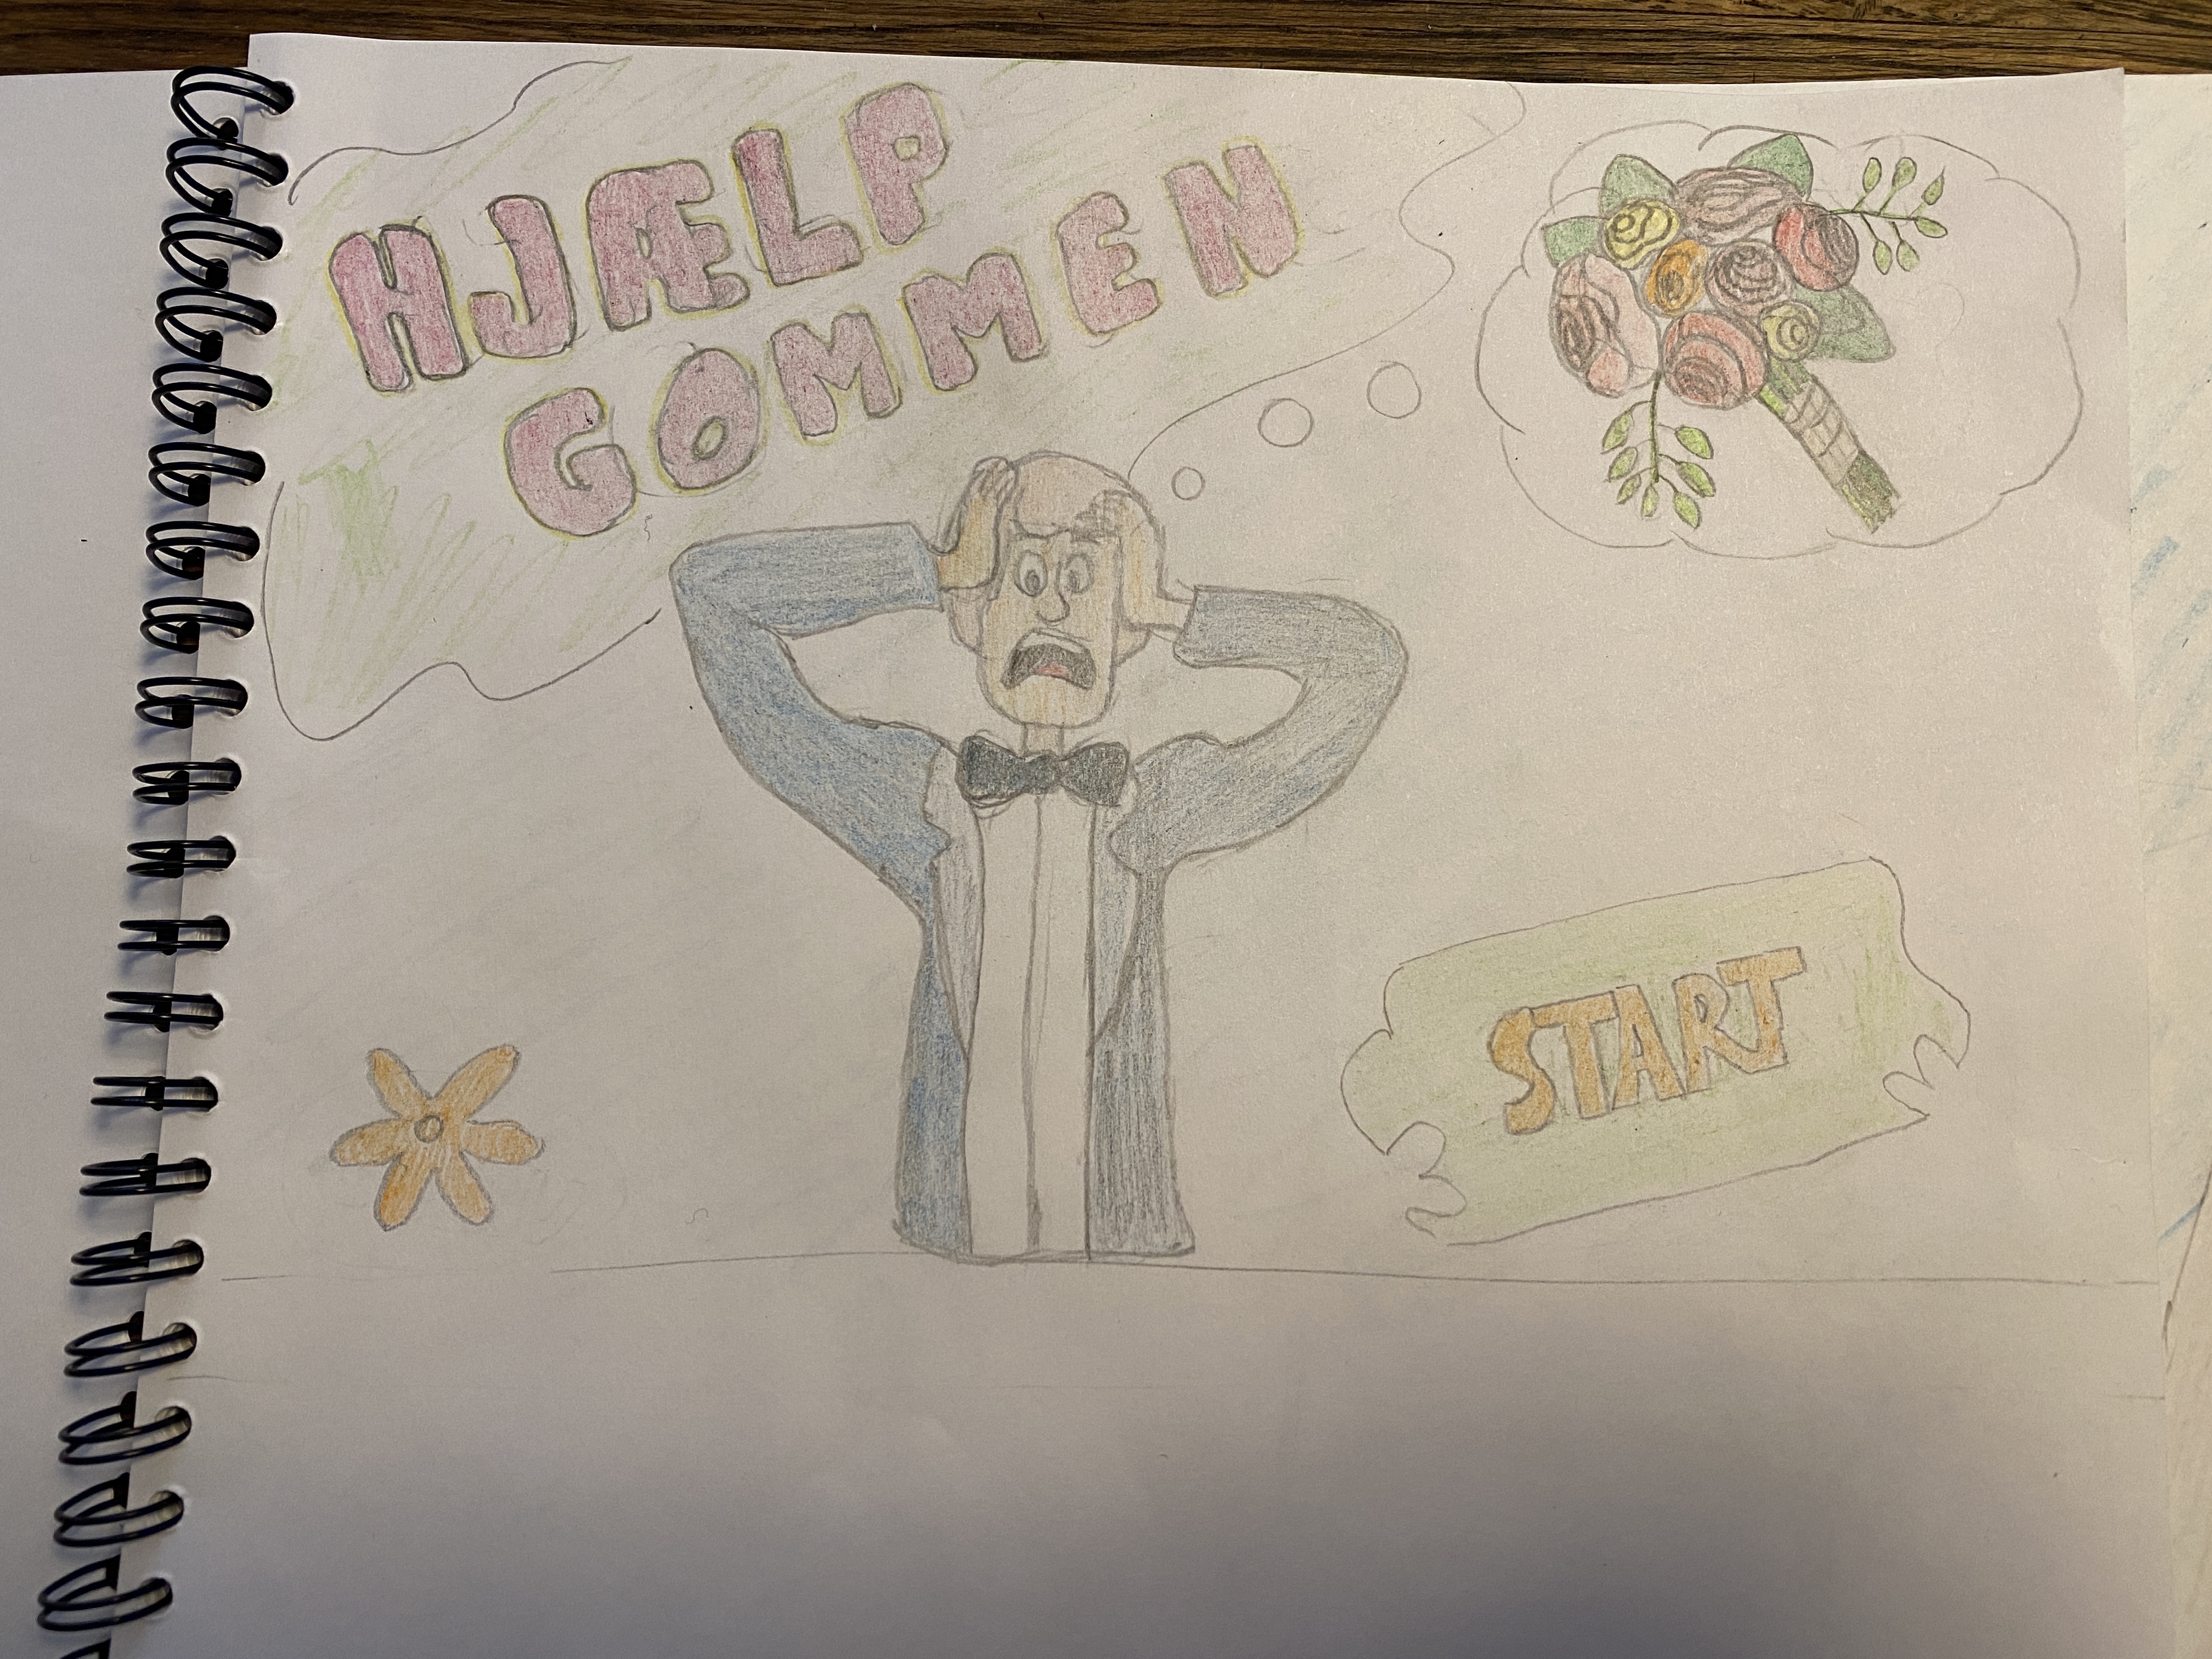 HJÆLP
GOMMEN
START